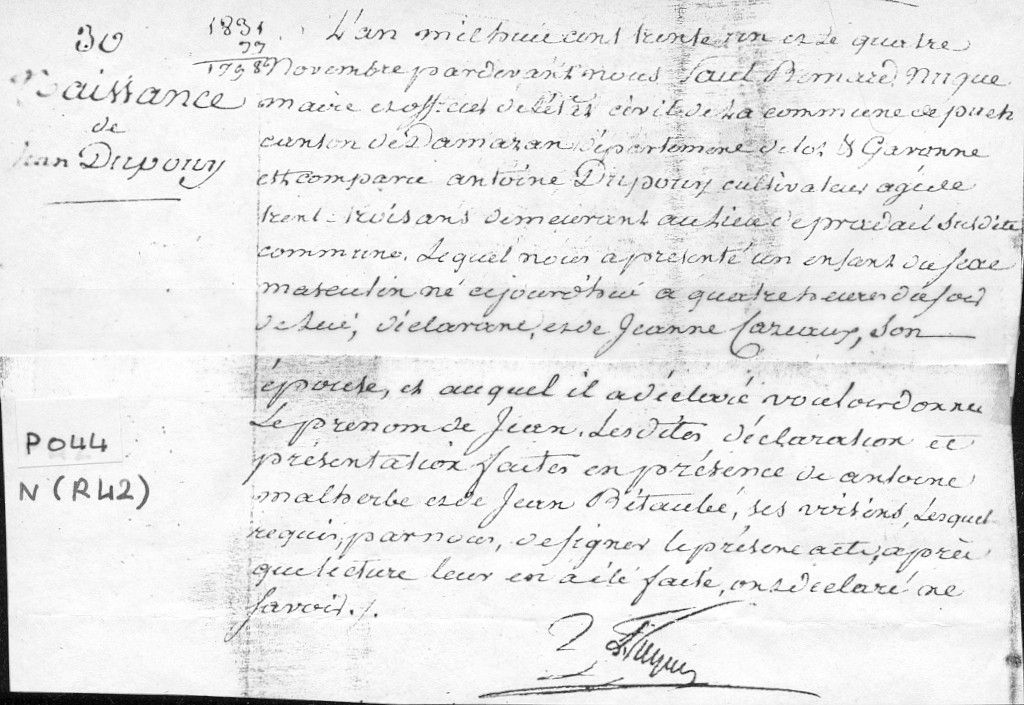 30
Naissance
de
Jean Dupouy
1831
33
1798
L'an mil huit cent trente un et le quatre
Novembre pardevant nous Paul Bernard Nuque
maire et officier de l'état civil de la commune de puch
canton de Damazan département de lot & Garonne
est comparu antoine Dupouy cultivateur agé de
trente trois ans demeurant au lieu de pradail susdite
commune. Lequel nous a présenté un enfant du sexe
masculin né cejourd'hui a quatre heures du soir
de lui, déclarant, et de Jeanne Cazeaux, son
épouse, et auquel il a déclaré vouloir donner
Le prenom de Jean. Lesdites déclaration et
présentation faites en présence de antoine
malherbe et de Jean Bitaubé, ses voisins, Lesquel
requis, par nous, de signer le présent acte, après
que lecture leur en a été faite, ont déclaré ne
savoir./.
P044
N (R42)